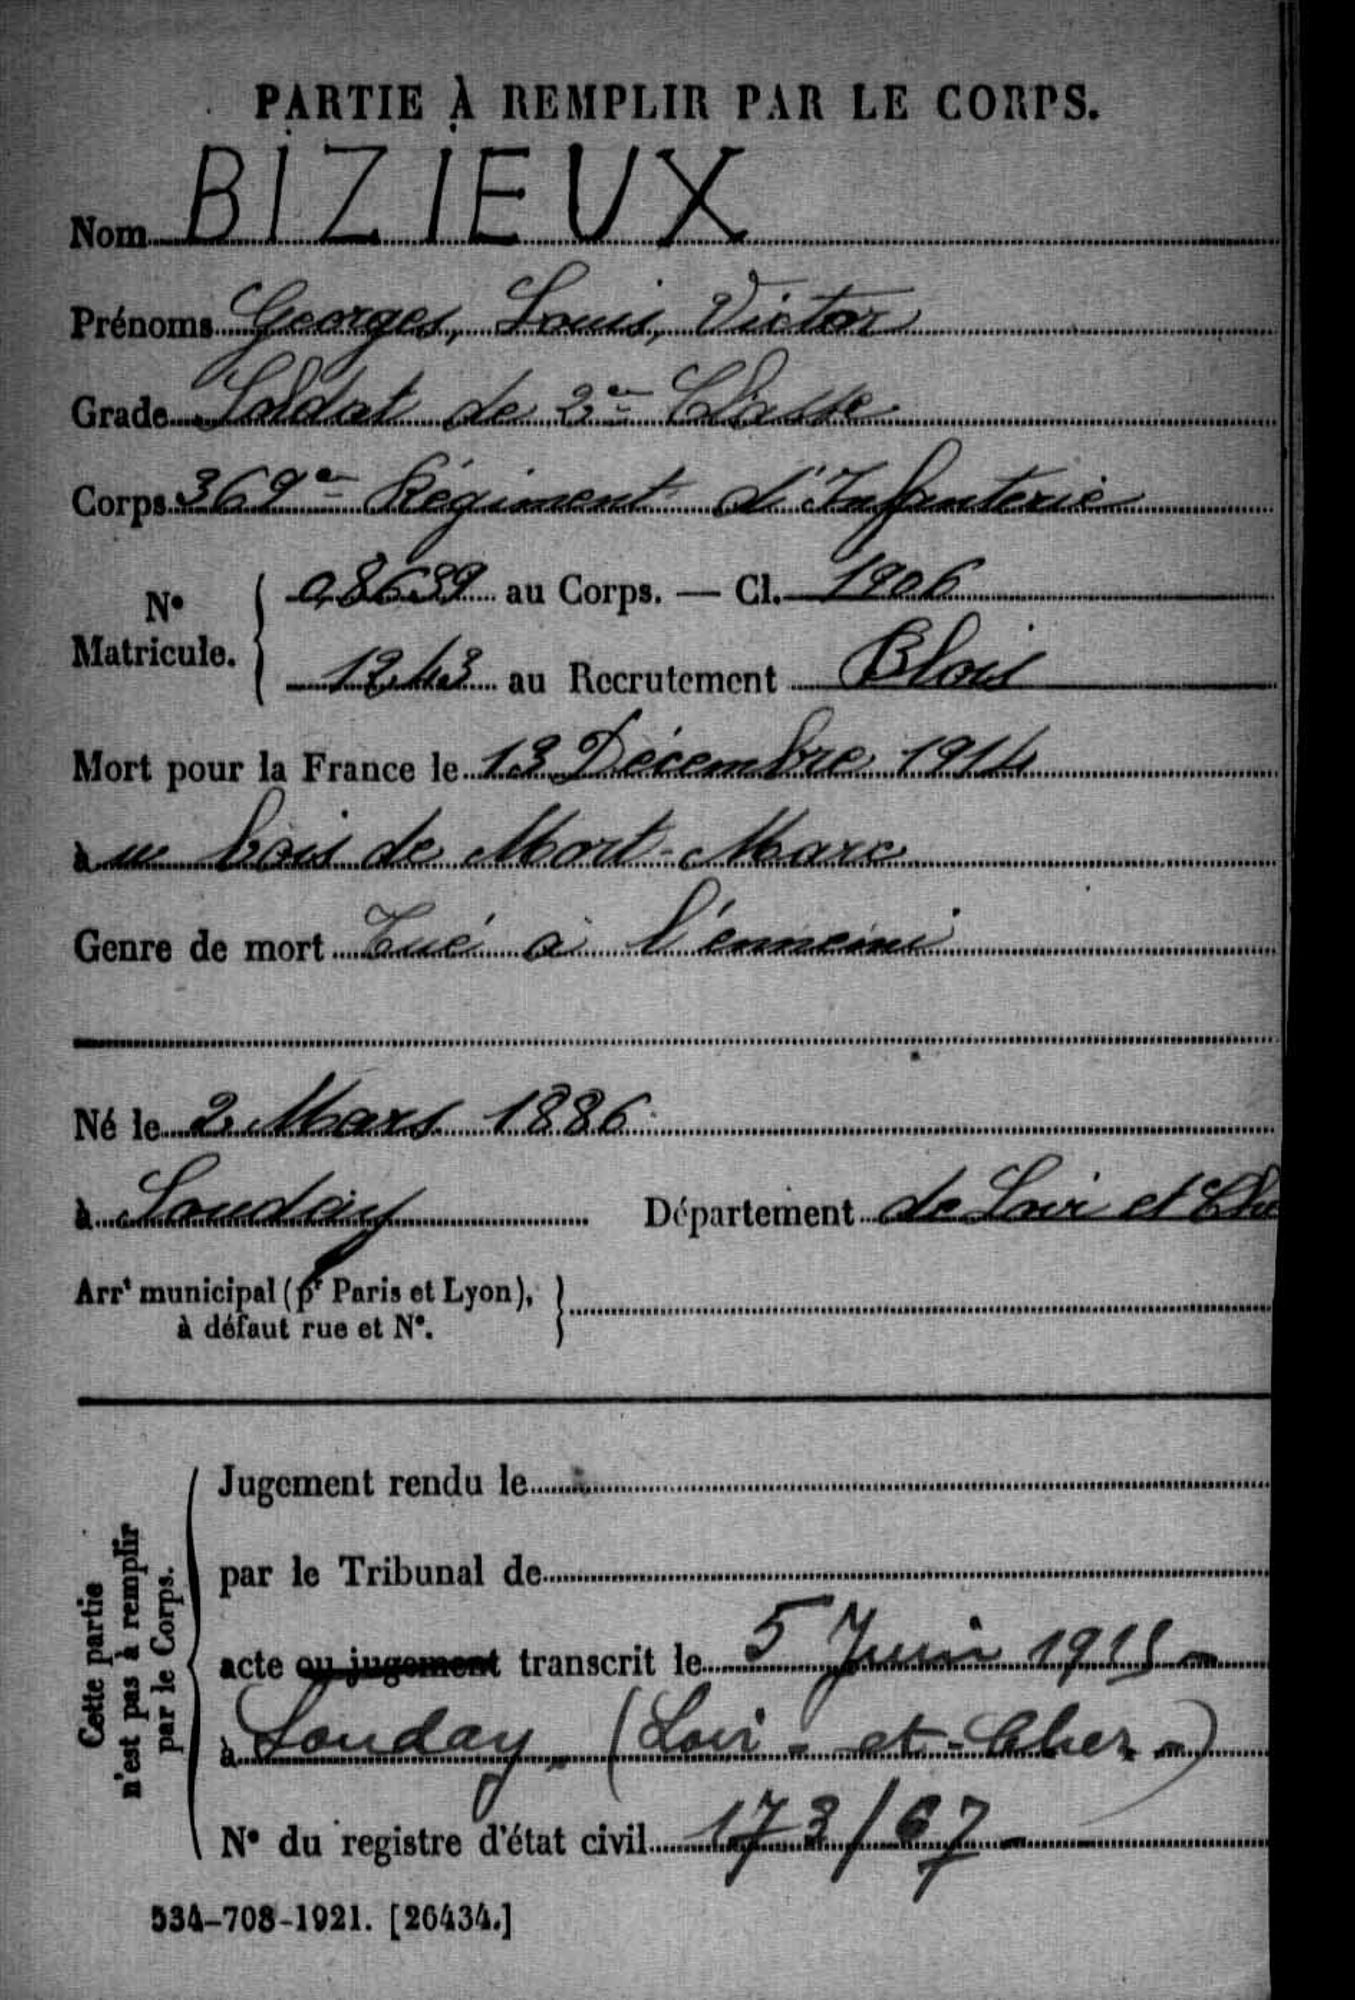 PARTIE À REMPLIR PAR LE CORPS.
Nom BIZIEUX
Prénoms Georges, Louis, Victor
Grade Soldat de 2e Classe
Corps 369e Régiment d'Infanterie
N° Matricule. 08639 au Corps. — Cl. 1906
1243 au Recrutement Blois
Mort pour la France le 13 Décembre 1914
au bois de Mort-Mare
Genre de mort Tué à l'ennemi
Né le 2 Mars 1886
à Souday Département de Loir et Cher
Arrt municipal (pr Paris et Lyon),
à défaut rue et N°.
Cette partie
n'est pas à remplir
par le Corps.
Jugement rendu le
par le Tribunal de
acte ou jugement transcrit le 5 Juin 1915 -
à Souday. (Loir - et - Cher -)
N° du registre d'état civil 173/67 -
534-708-1921. [26434.]